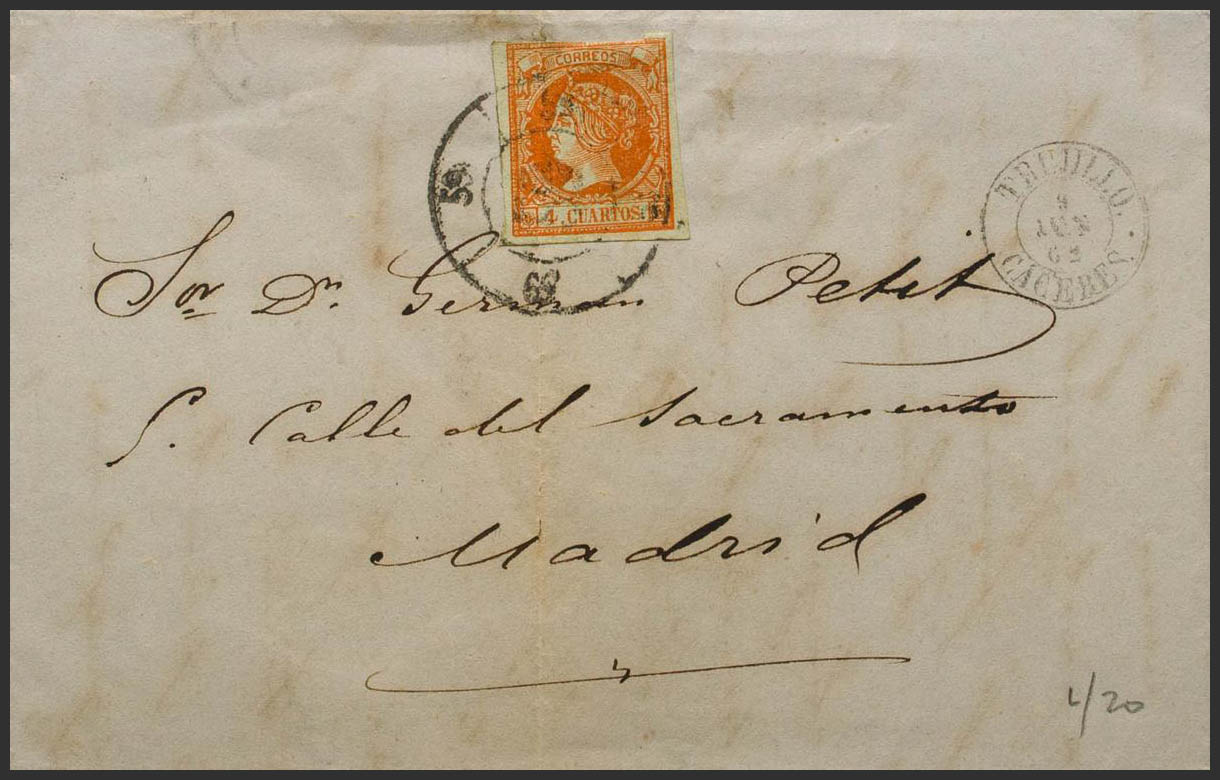 CORREOS
4 CUARTOS.
59
59
TRUJILLO.
9
JUN
62
CACERES.
Sor Dn German Petit
5. Calle del Sacramento
Madrid
4/20